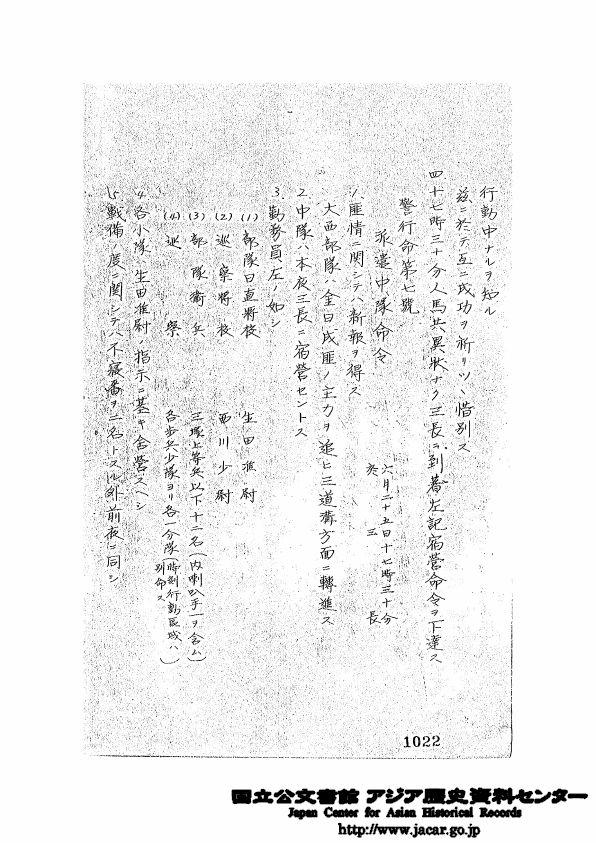 行動中ナルヲ知ル
玆ニ於テ互ニ成功ヲ祈リツヽ惜別ス
四十七時三十分人馬共異狀ナク三長ニ到着左記宿營命令ヲ下達ス
警行命第七號
派遣中隊命令
六月二十五日十七時三十分
於三長
1、匪情ニ関シテハ新報ヲ得ス
大西部隊ハ金日成匪ノ主力ヲ追ヒ三道溝方面ニ轉進ス
2 中隊ハ本夜三長ニ宿營セントス
3、勤務員左ノ如シ
(1) 部隊日直將校 生田准尉
(2) 巡察將校 西川少尉
(3) 部隊衛兵 三塚上等兵以下十二名(内喇叭手一ヲ含ム)
(4) 巡察 各步兵小隊ヨリ各一分隊(時刻行動區域ハ別命ス)
4 各小隊ハ生田准尉ノ指示ニ基キ舍營スヘシ
5 戰備ノ度ニ関シテハ不寢番ヲ二名トスル外前夜ニ同シ
1022
国立公文書館 アジア歴史資料センター
Japan Center for Asian Historical Records
http://www.jacar.go.jp